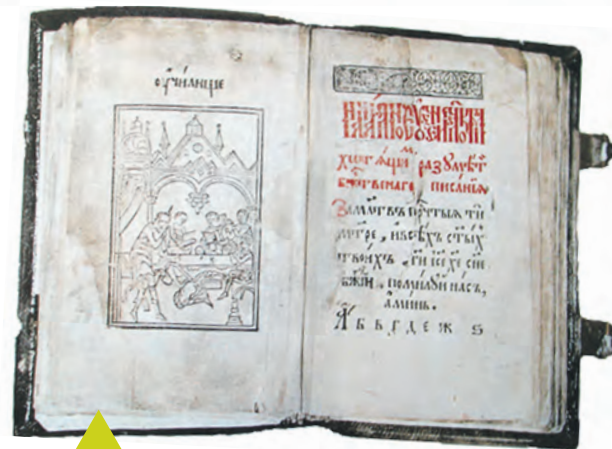 ᲂучи́лище
хотѧ́щиⷨ разꙋмѣ́ти
бж҃е́ственаго писа́нїѧ
За мл҃твъ прⷭ҇чтыѧ ти
мт҃ре, и всѣ́хъ ст҃ы́хъ
твои́хъ, гⷭ҇и і҆с҃е хⷭ҇е сн҃е
бж҃їи, поми́лꙋи насъ,
а҆ми́нь.
А҆ б в г д е ж ѕ